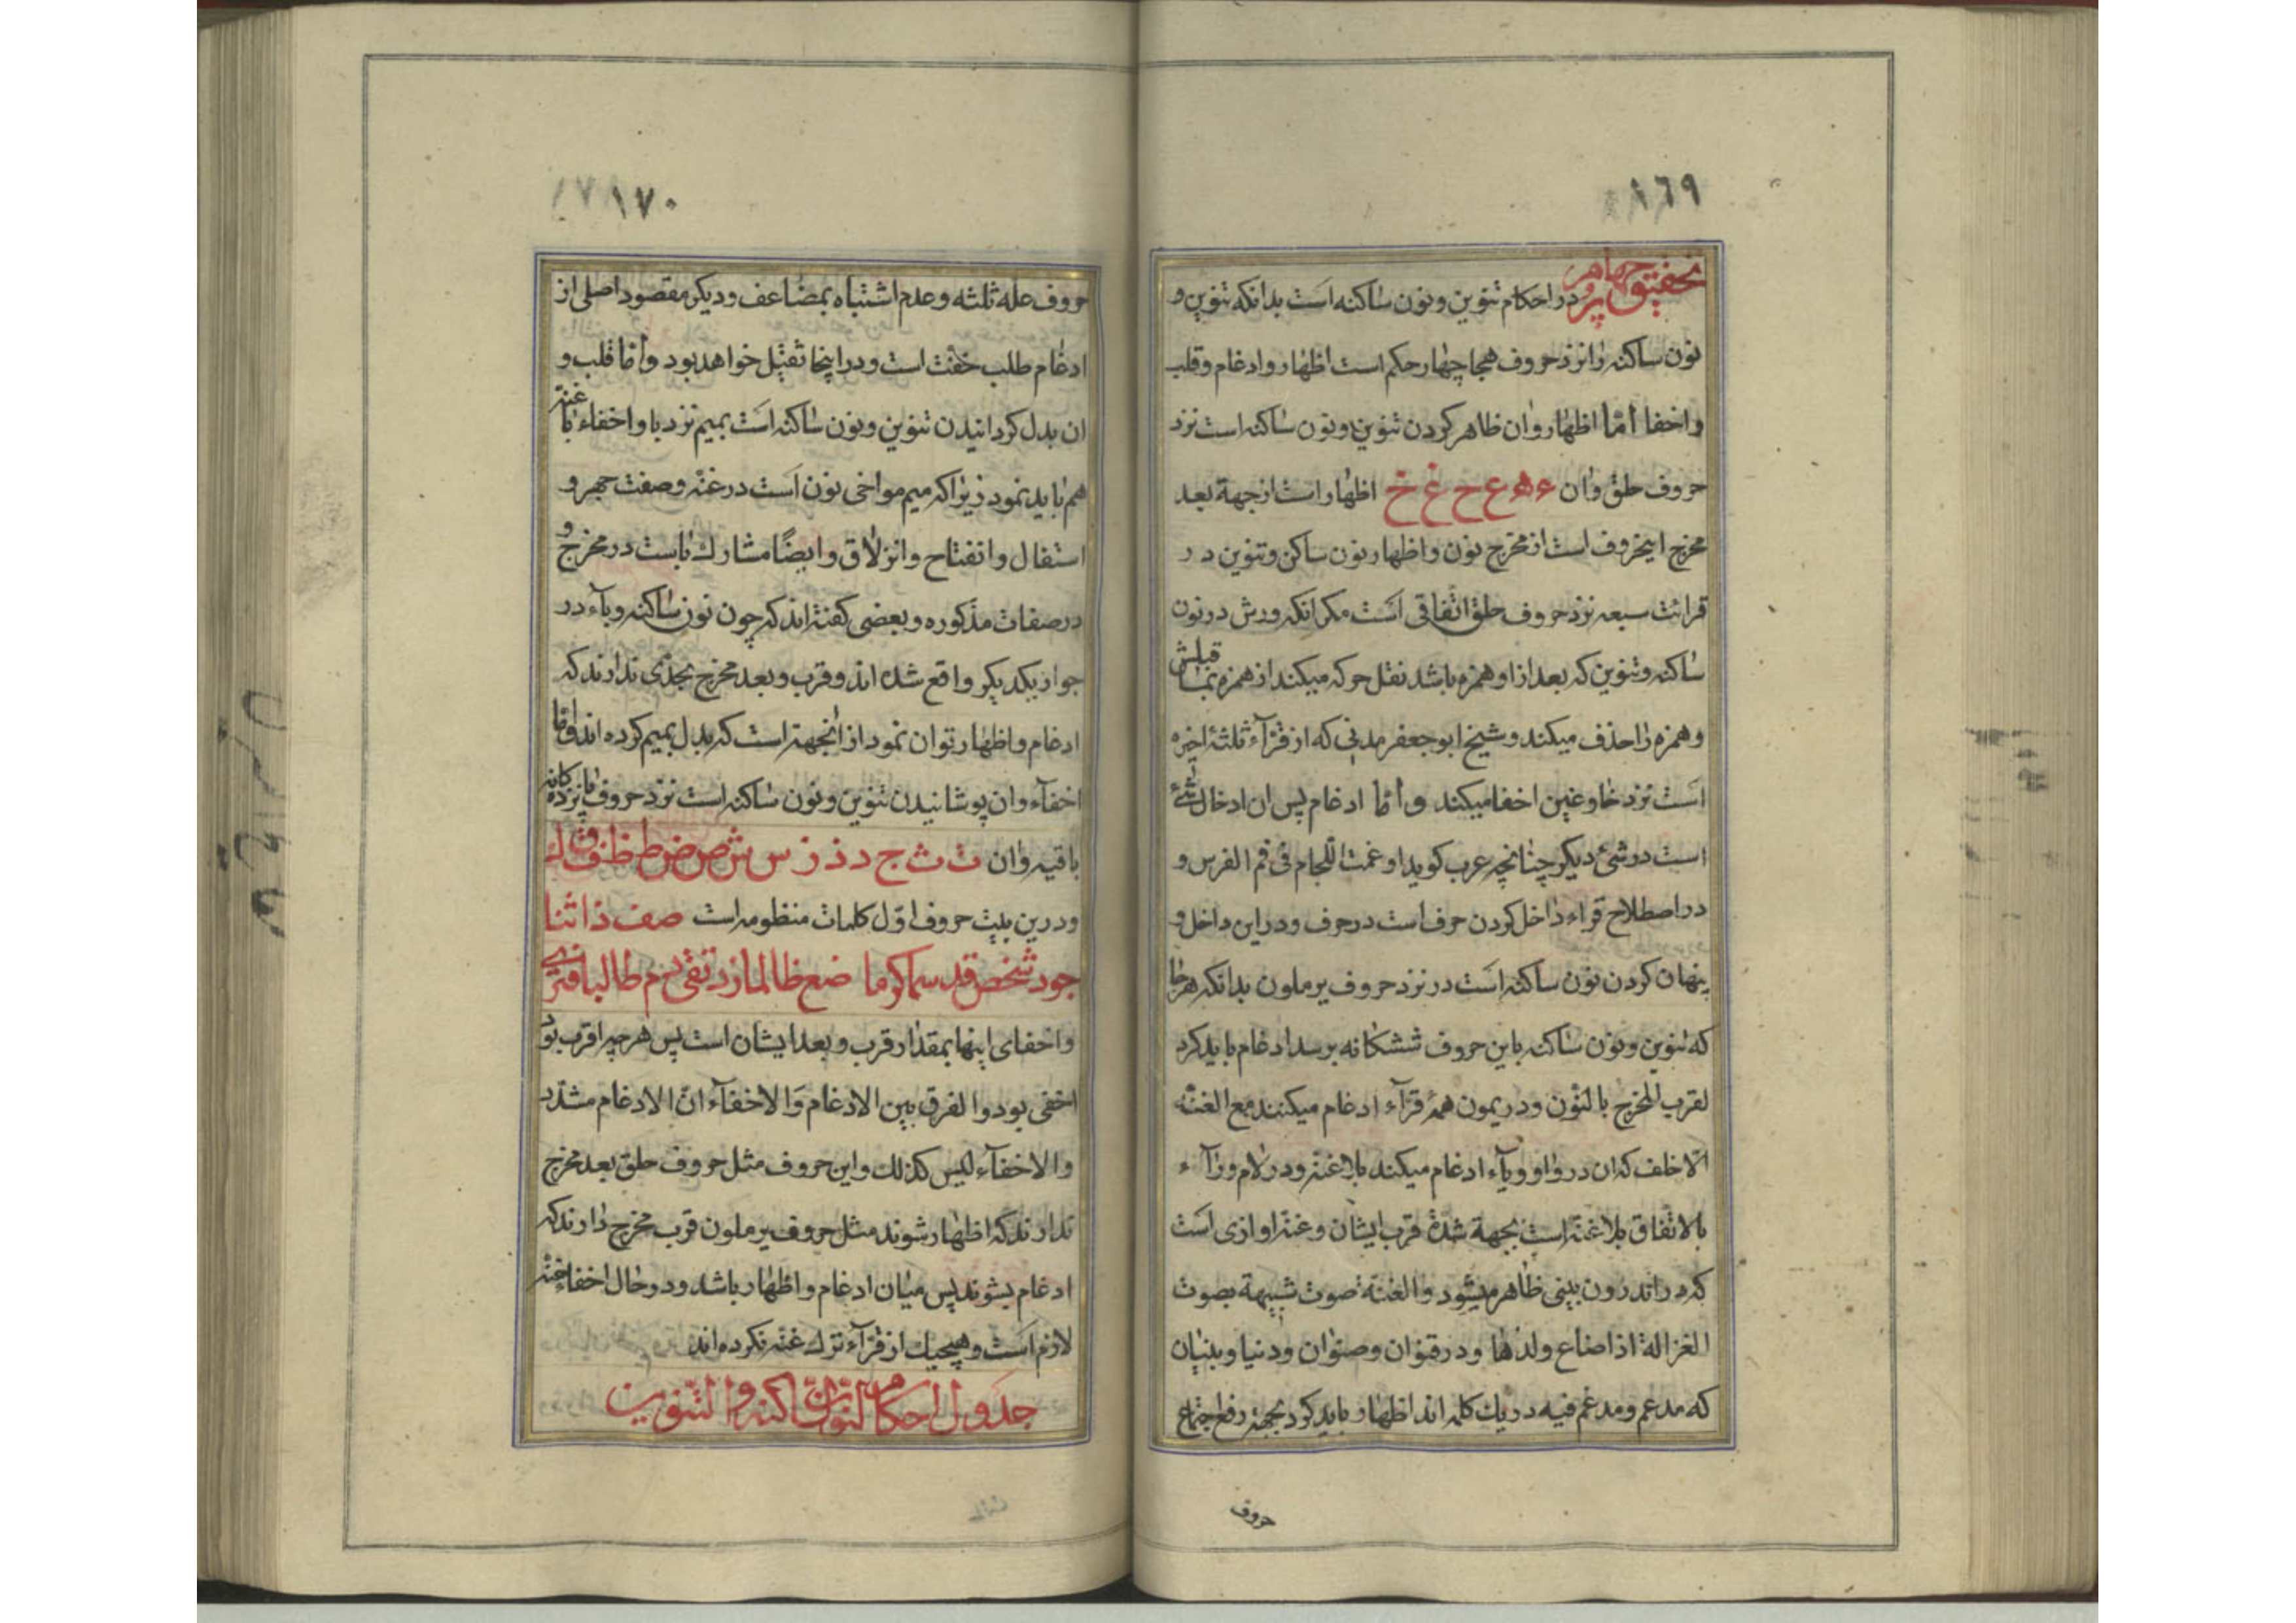 ١٦٩
تحقیق چهارم در احکام تنوین و نون ساکنه است بدانکه تنوین و
نون ساکنه را نزد حروف هجا چهار حکم است اظهار و ادغام و قلب
و اخفا امّا اظهار و ان ظاهر کردن تنوین و نون ساکنه است نزد
حروف حلق و ان ء ه ع ح غ خ اظهار است از جهة بعد
مخرج اینحروف است از مخرج نون و اظهار نون ساکن و تنوین در
قرائت سبعه نزد حروف حلق اتفاقی است مکر انکه ورش در نون
ساکنه و تنوین که بعد از او همزه باشد نقل حرکه میکند از همزه بما قبلش
و همزه را حذف میکند و شیخ ابو جعفر مدنی که از قرّآء ثلثهٔ اخیره
است نزد خا و غین اخفا میکند و امّا ادغام پس ان ادخال شئ
است در شئ دیکر چنانچه عرب کوید اوغمت اللجام فی فم الفرس و
در اصطلاح قراء داخل کردن حرف است در حرف و در این داخل و
پنهان کردن نون ساکنه است در نزد حروف یرملون بدانکه هر جا
که تنوین و نون ساکنه باین حروف ششکانه برسد ادغام باید کرد
لقرب المخرج بالنون و در یمون همهٔ قرّآء ادغام میکنند مع الغنّه
الّا خلف که ان در واو و یآء ادغام میکند بلا غنه و در لام و رآء
بالاتفاق بلا غنّه است بجهة شدّة قرب ایشان و غنّه اوازی است
که در اندرون بینی ظاهر میشود و الغنّة صوت شبیهة بصوت
الغزالة اذا ضاع ولدها و در قنوان و صنوان و دنیا و بنیان
که مدغم و مدغم فیه در یك کلمه اند اظهار باید کرد بجهة رفع اجتماع
حروف
١٧٠
حروف عله ثلثه و عدم اشتباه بمضاعف و دیکر مقصود اصلی از
ادغام طلب خفّت است و در اینجا ثقیل خواهد بود و امّا قلب و
ان بدل کردانیدن تنوین و نون ساکنه است بمیم نزد با و اخفاء با غنه
هم باید نمود زیرا که میم مواخی نون است در غنّه و صفت جهر و
استفال و انفتاح و انزلاق و ایضًا مشارك باست در مخرج و
در صفات مذکوره و بعضی کفته اند که چون نون ساکنه و بآء در
جوار یکدیکر واقع شده اند و قرب و بعد مخرج بحدّی ندارند که
ادغام و اظهار توان نمود از انجهة است که بدل بمیم کرده اند و امّا
اخفآء و ان پوشانیدن تنوین و نون ساکنه است نزد حروف پانزده کانه
باقیه و ان ت ث ج د ذ ز س ش ص ض ط ظ ف ق ك
و درین بیت حروف اول کلمات منظومه است صف ذا ثنا
جود شخص قد سما کرما ضع ظالما زد تقی دم طالبا فتری
و اخفای اینها بمقدار قرب و بعد ایشان است پس هر چه اقرب بود
اخفی بود و الفرق بین الادغام و الاخفآء انّ الادغام مشدّد
و الاخفآء لیس کذلك و این حروف مثل حروف حلق بعد مخرج
ندارند که اظهار شوند مثل حروف یرملون قرب مخرج دارند که
ادغام بشوند پس میان ادغام و اظهار باشد و در حال اخفاء غنّه
لازم است و هیچیك از قرّآء ترك غنّه نکرده اند
جدول احکام النون الساکنه و التنوین